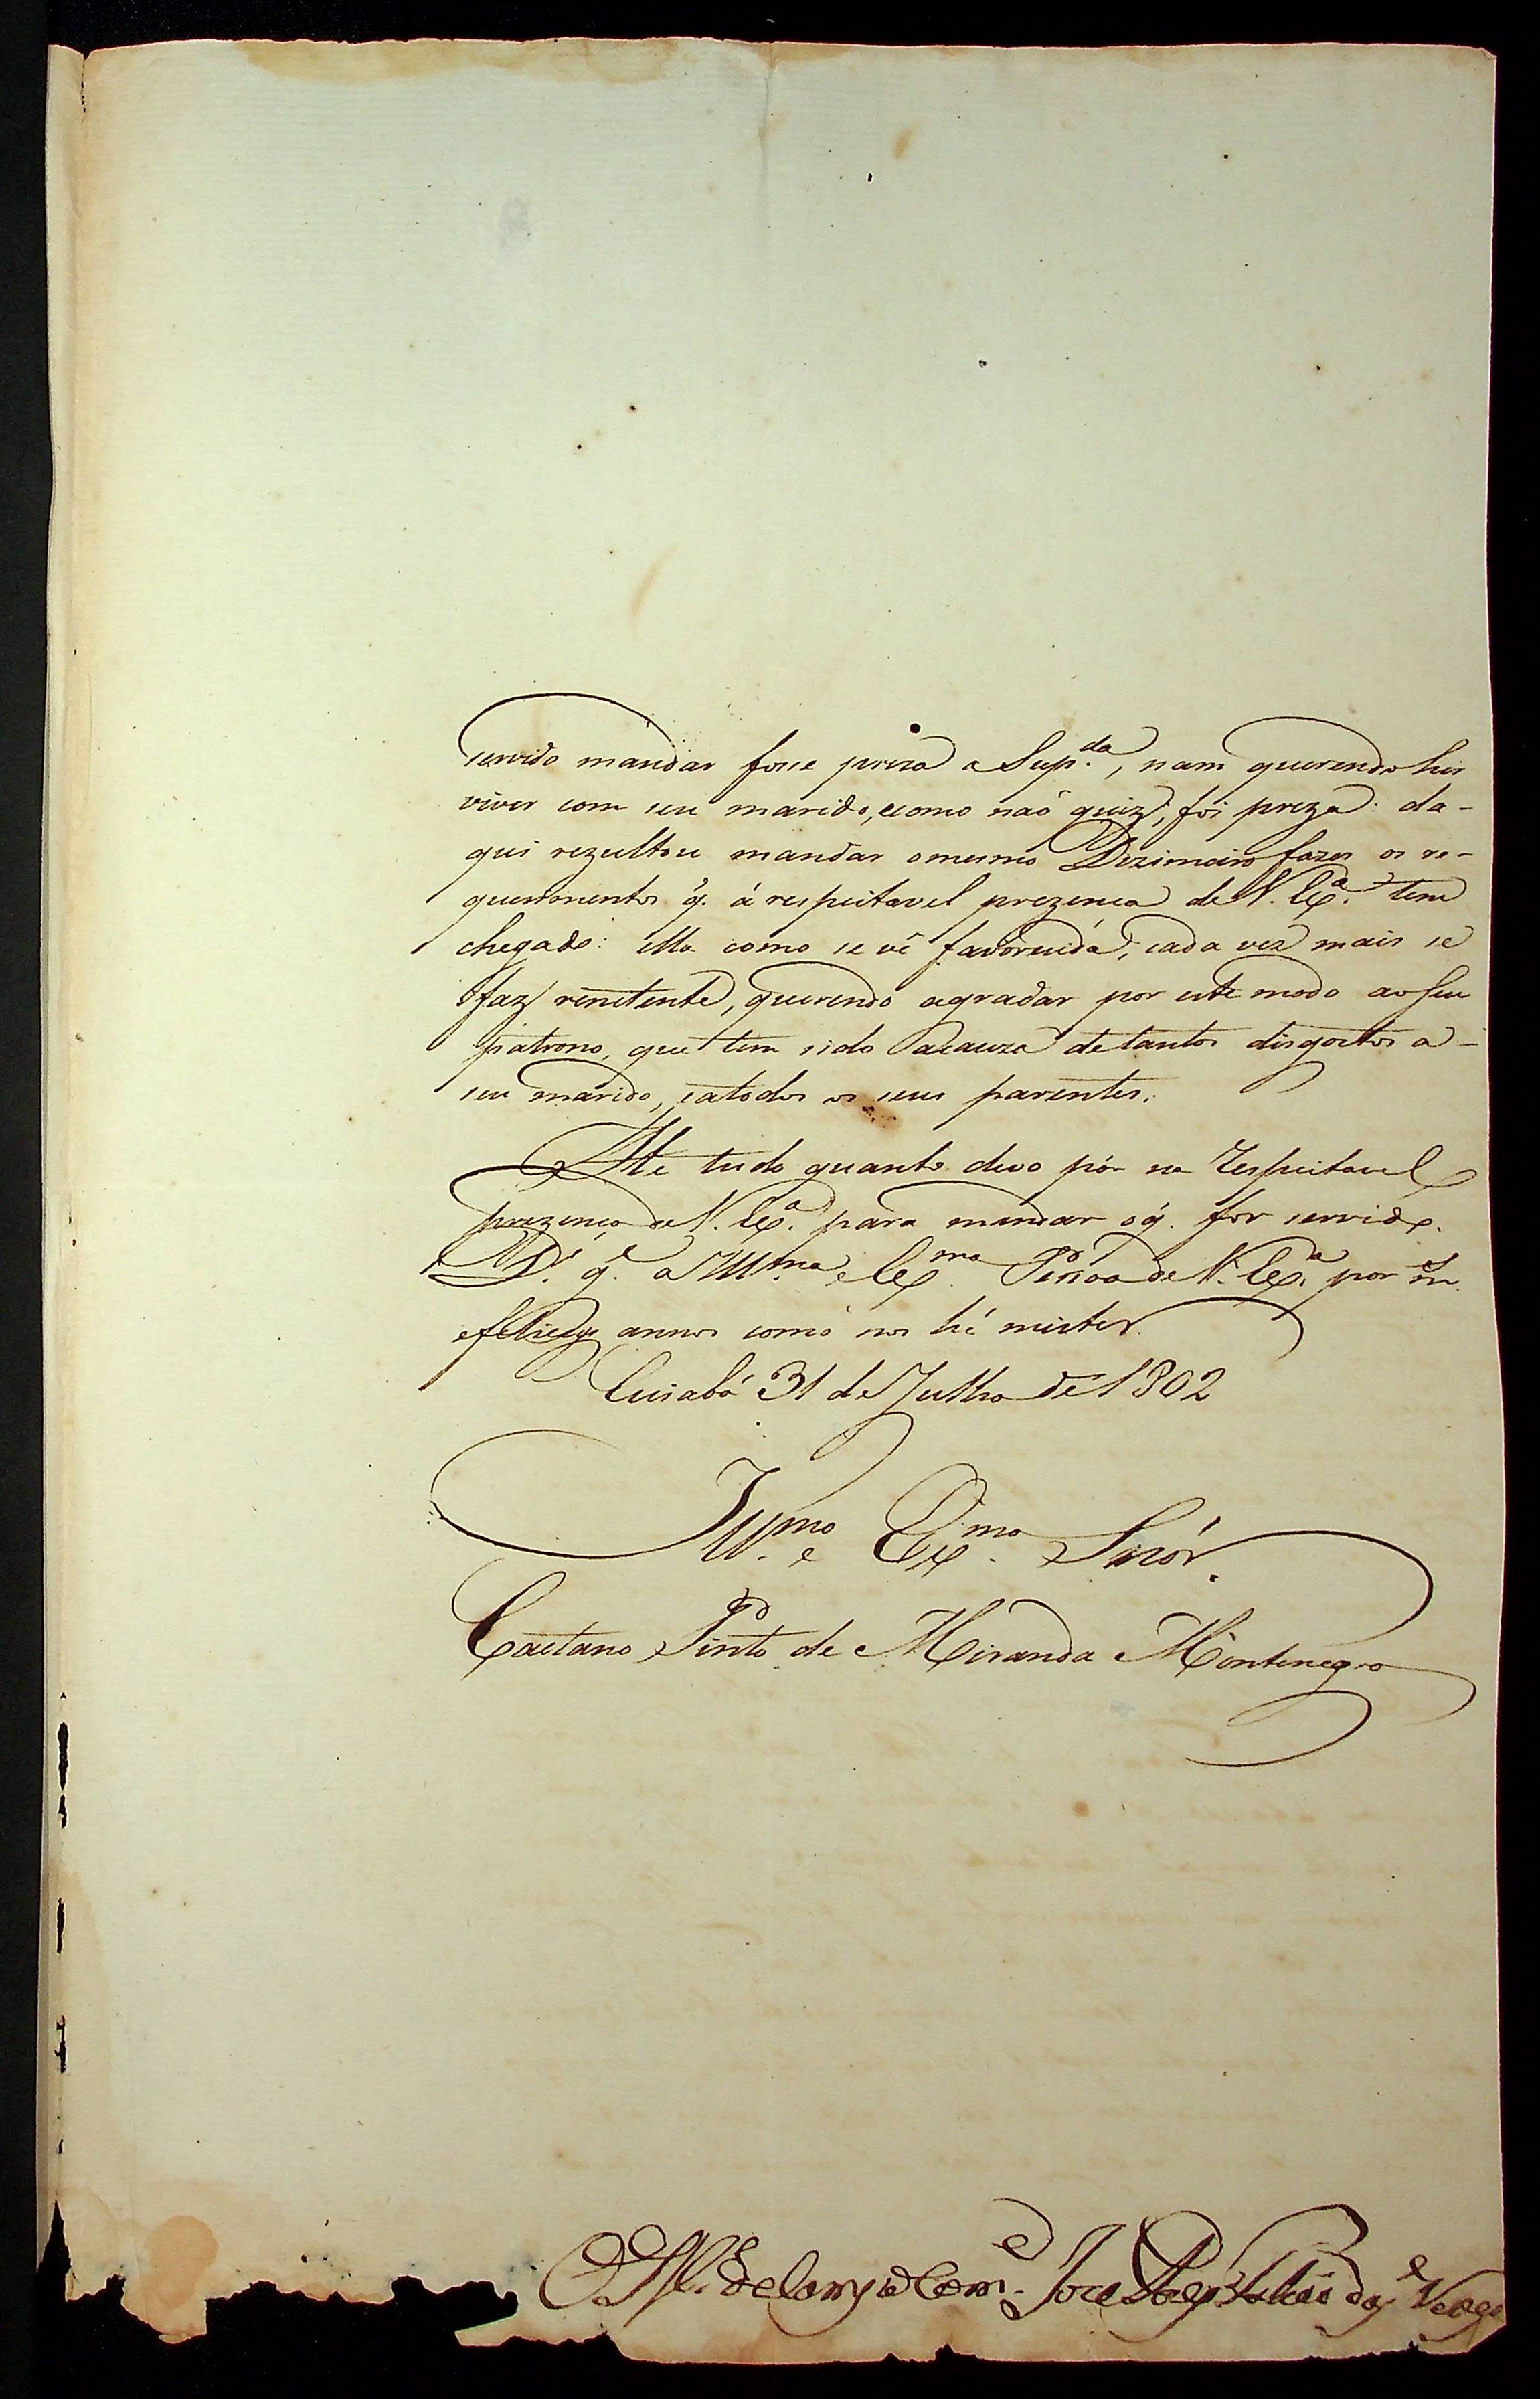 servido mandar fosse preza a Sup.da, nam querendo hir
viver com seu marido, ecomo naó quiz, foi preza: da-
qui rezultou mandar omesmo Dizimeiro fazer os re-
querimentos q̃. á respeitavel prezença de V. Ex.ª tem
chegado: ella como se vê favorecida, cada vez mais se
faz renitente, querendo agradar por este modo ao seu
patrono, que tem sido acauza de tantos disgostos a
seu marido, eatodos os seus parentes.
He tudo quanto devo pôr na respeitavel
prezença de V. Ex.ª para mandar oq̃. for servido.
D.s g.e a Ill.ma e Ex.ma Pessoa de V. Ex.ª por m.
efelizes annos como nos hé mister.
Cuiabá 31 de Julho de 1802
Ill.mo e Ex.mo Snór.
Caetano Pinto de Miranda Montenegro
O M.e de Camp. Com.e Joze Paes das